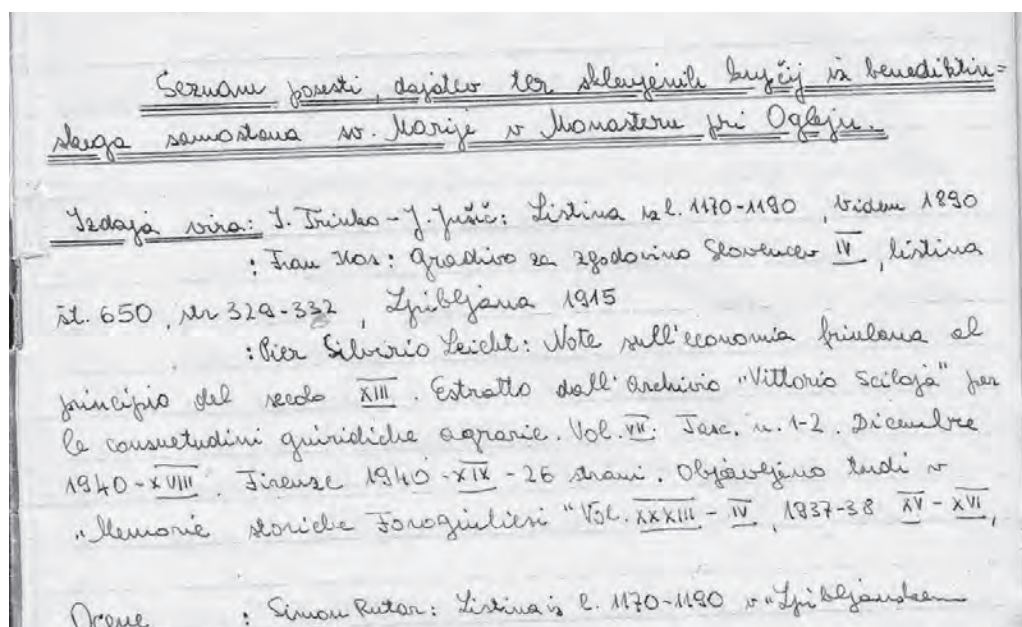 Seznam posesti, dajatev ter sklenjenih kupčij iz benediktin=
skega samostana sv. Marije v Monasteru pri Ogleju.
Izdaja vira: I. Trinko - J. Jušič: Listina iz l. 1170-1190, Videm 1890
: Franc Kos: Gradivo za zgodovino Slovencev IV, listina
št. 650, str 329-332, Ljubljana 1915
: Pier Silverio Leicht: Note sull'economia friulana al
principio del secolo XIII. Estratto dall'Archivio "Vittorio Scialoja" per
le consuetudini giuridiche agrarie. Vol. VII. Fasc. n. 1-2. Dicembre
1940-XVIII. Firenze 1940-XIX - 26 strani. Objavljeno tudi v
"Memorie storiche Forogiuliesi" Vol. XXXIII - IV, 1937-38 XV - XVI,
Ocene : Simon Rutar: Listina iz l. 1170-1190 v "Ljubljanskem